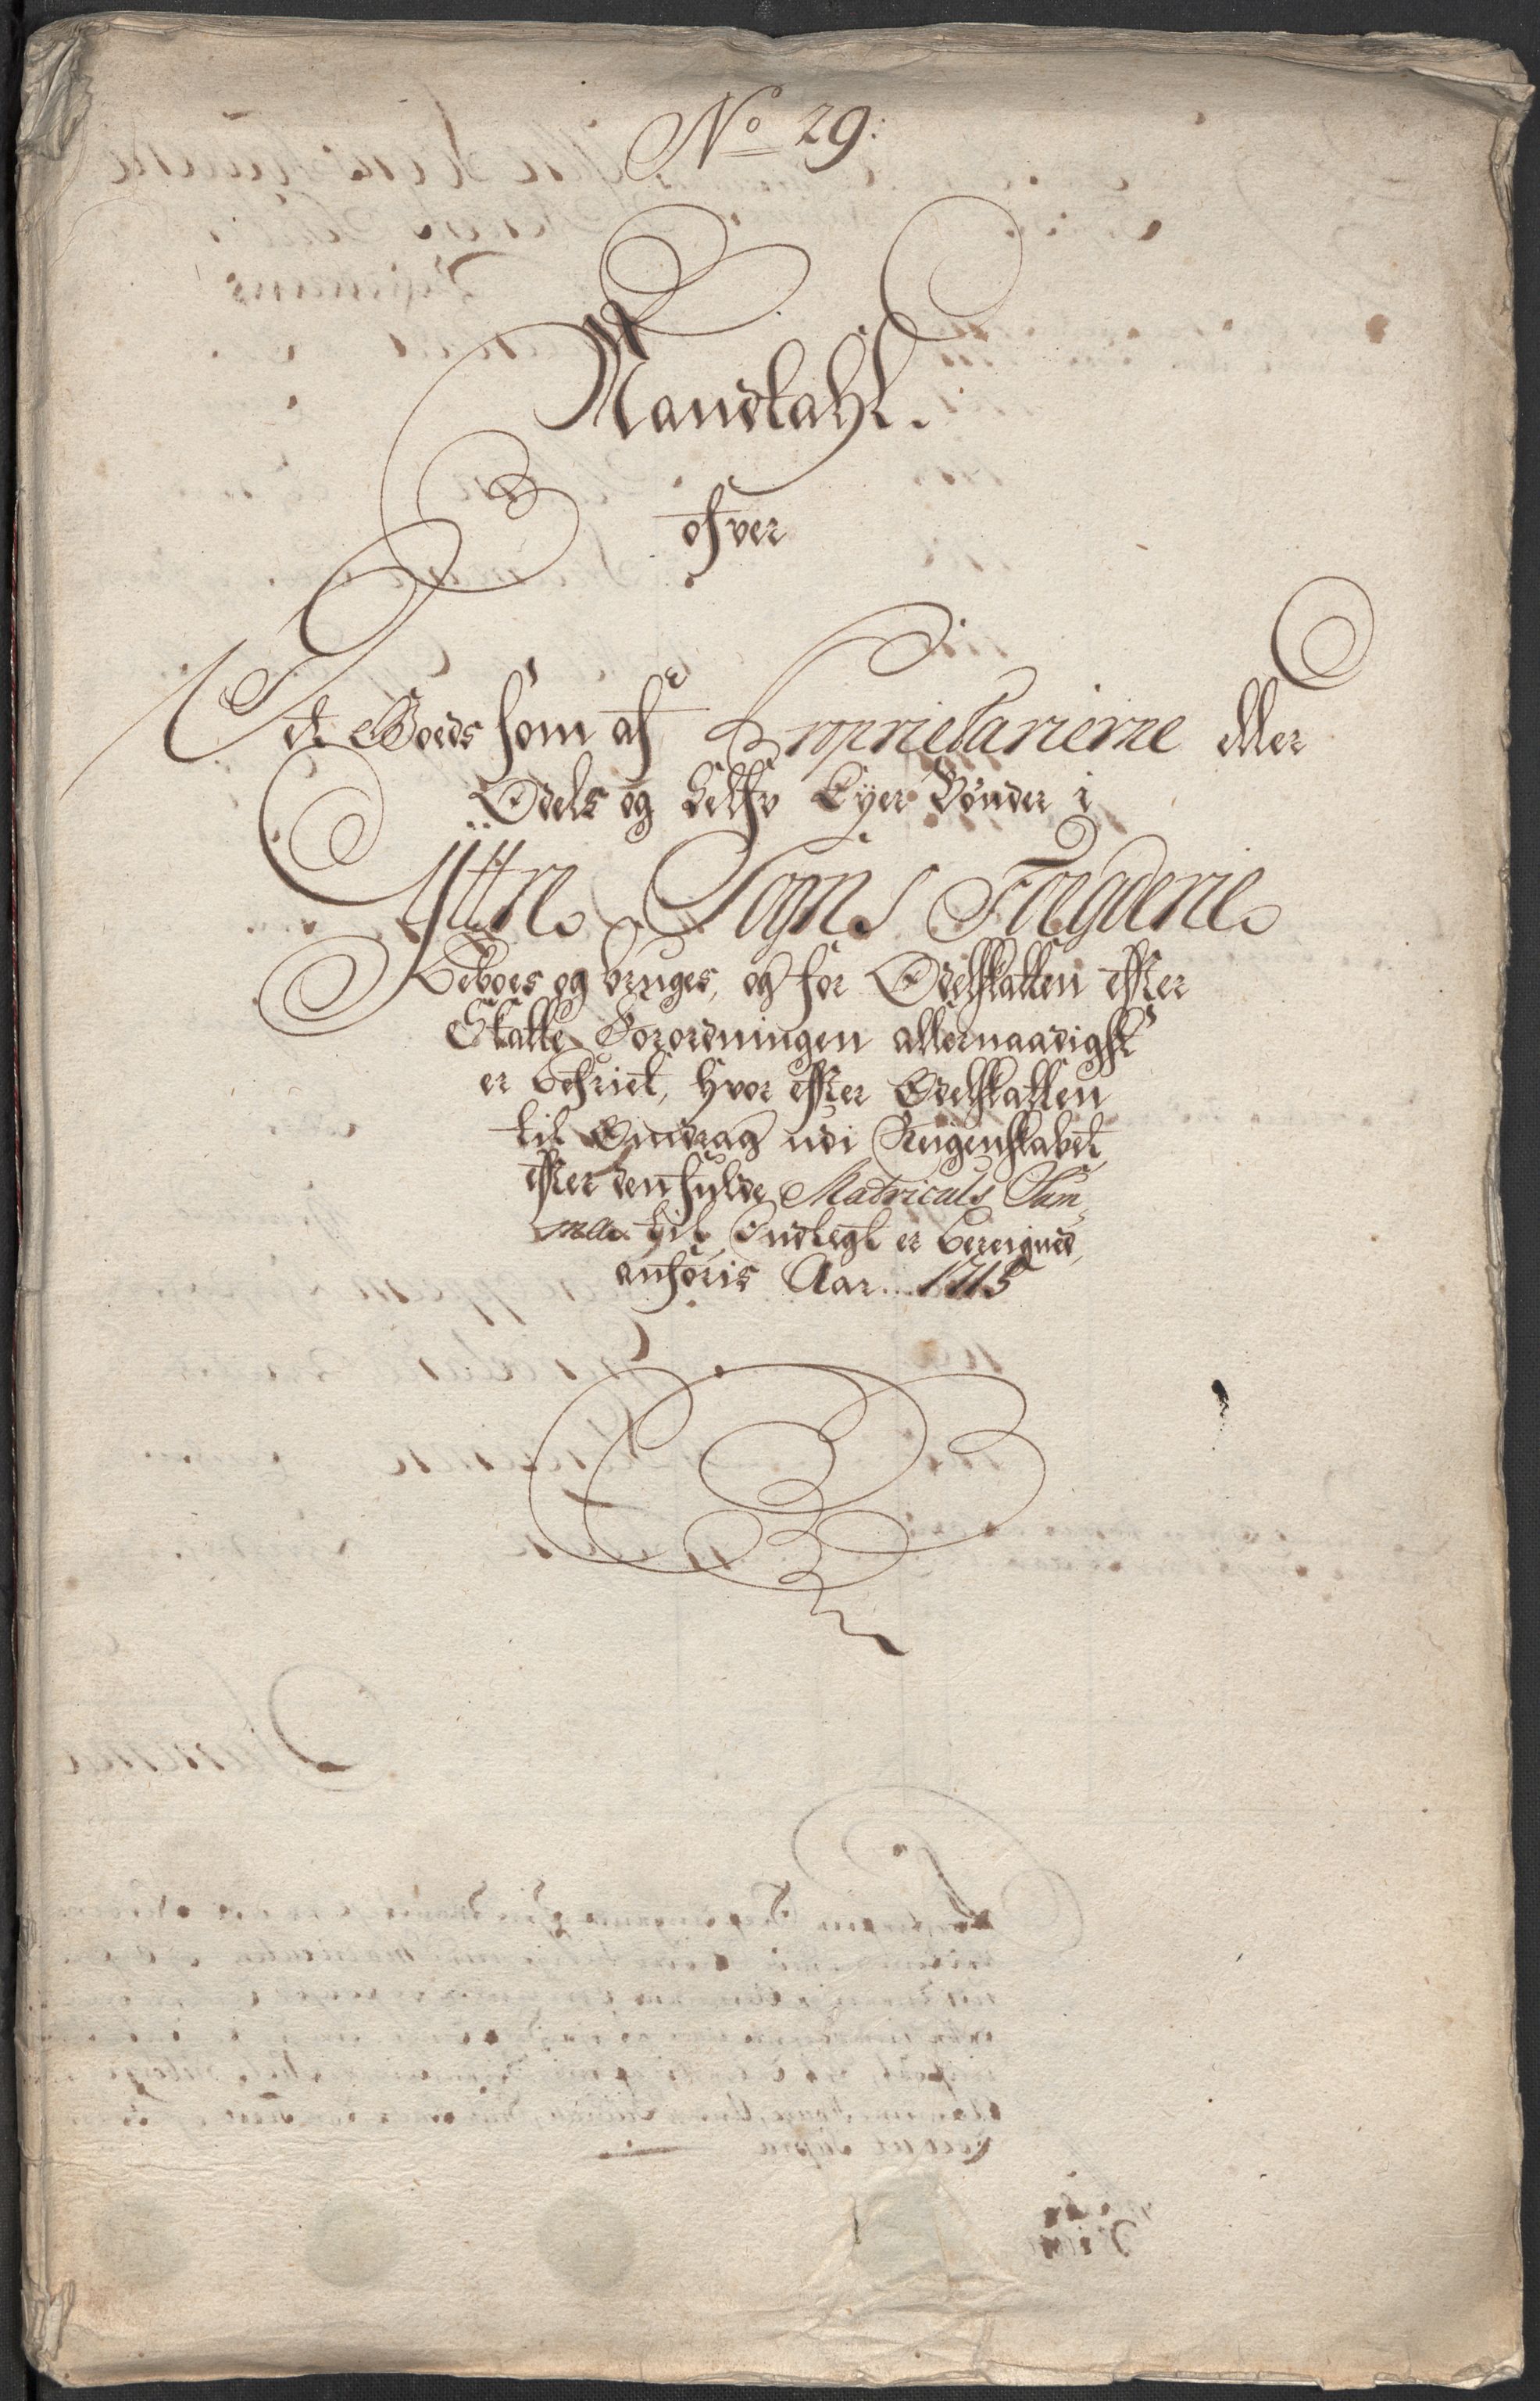 No 29:
Mandtahl.
ofver
Det Goeds som af Proprietarierne eller
Odels og Selfv Eyer Bønder i
Yttre Sogns Foegderie
Beboes og bruges, og for Odelskatten efter
Skatte Forordningen allernaadigst
er befriet, hvor efter Odelskatten
til Ofdrag udi Reigenskabet,
efter den fulde Matriculs Sum,,
ma til Indtegt er bereigned,
anføris Aar. 1715